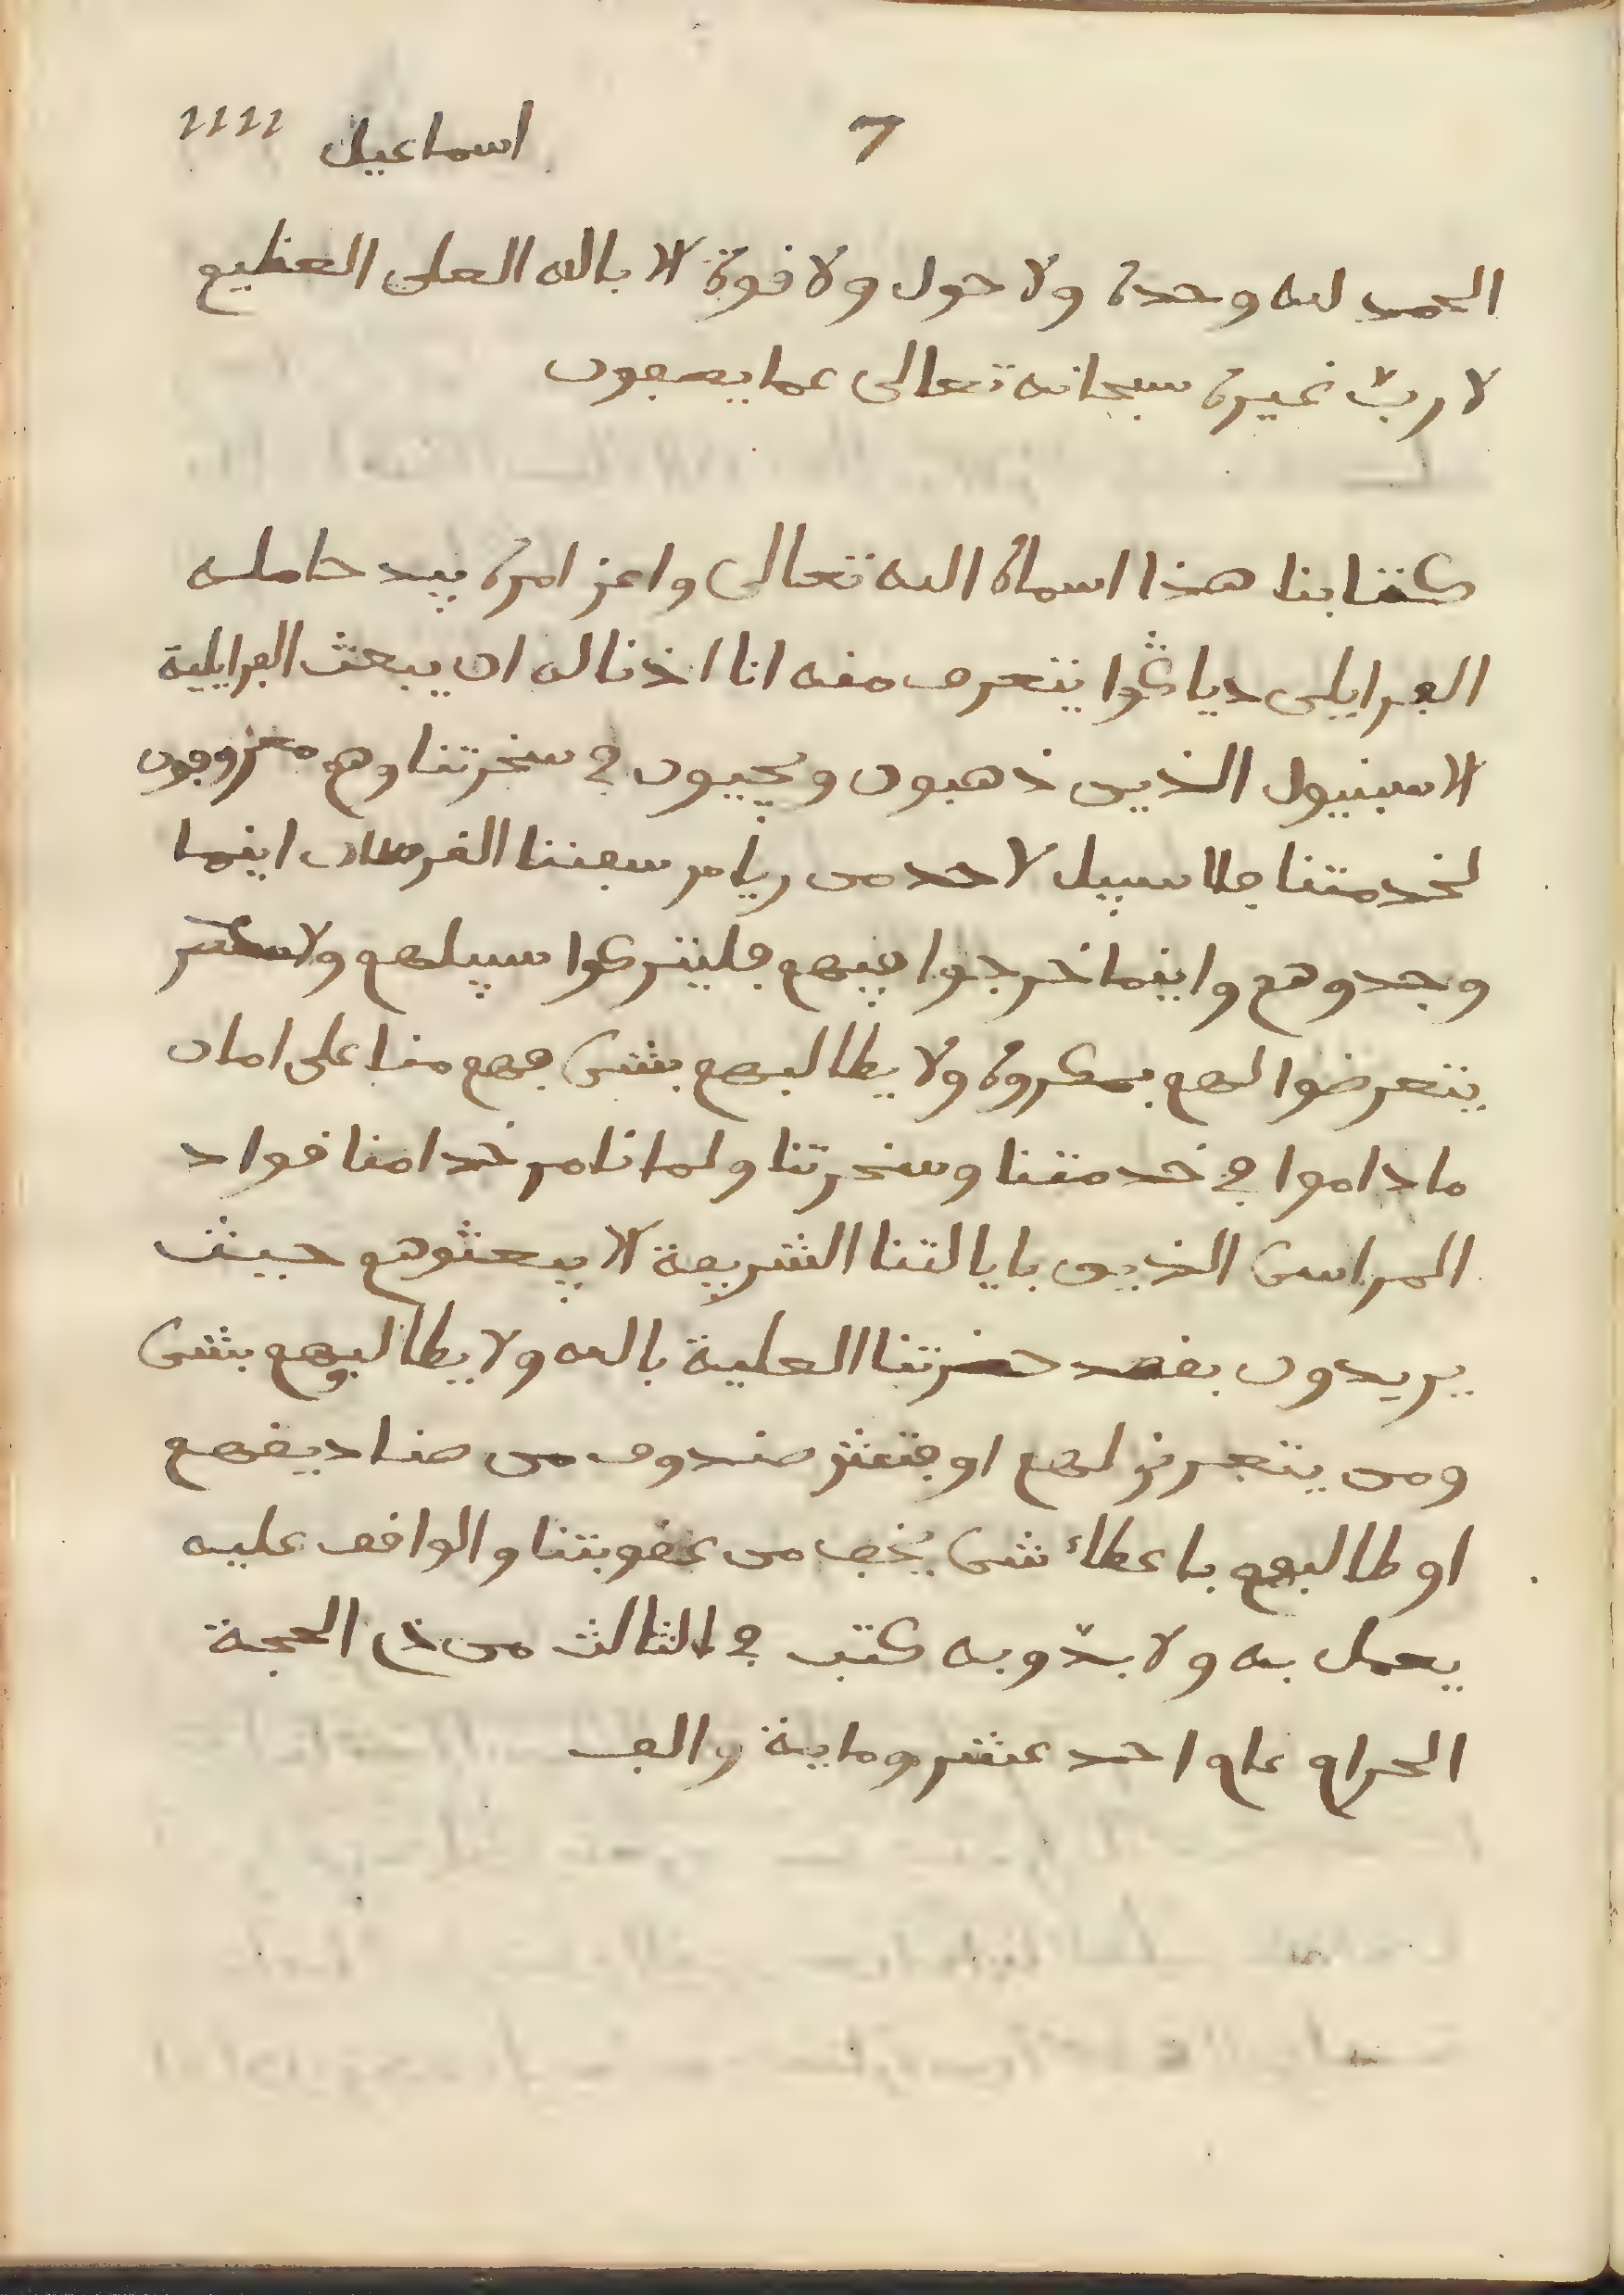 7 اسماعيل 1111
الحمد لله وحده ولا حول ولا قوة الا بالله العلى العظيم
لا ربّ غيره سبحانه تعالى عما يصفون
كتابنا هذا اسماه الله تعالى واعز امره بيد حامله
الفرايلى دياڨوا يتعرف منه انا اذنا له ان يبعث الفرايلية
الاسبنيول الذين ذهبون ويجيون في سخرتنا وهم
لخدمتنا فلا سبيل لاحد من رياس سفننا القرصان اينما
وجدوهم واينما خرجوا فيهم فليتركوا سبيلهم ولا
يتعرضوا لهم بمكروه ولا يطالبهم بشى فهم منا على امان
ما داموا في خدمتنا وسخرتنا ولما نامر خدامنا قواد
المراسى الذين بايالتنا الشريفة الا يبعثوهم حيث
يريدون بقصد حضرتنا العلية بالله ولا يطالبوهم بشى
ومن يتعرض لهم او فتش صندوق من صناديقهم
او طالبهم باعطاء شى يخف من عقوبتنا والواقف عليه
يعمل به ولا بدّ وبه كتب في الثالث من ذى الحجة
الحرام عام احد عشر وماية والف